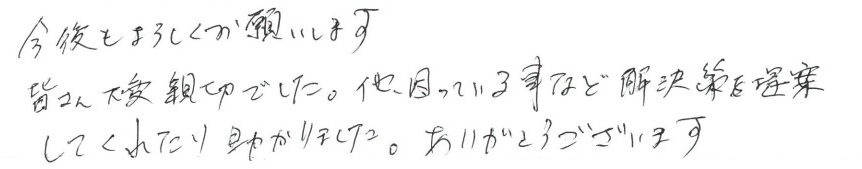 今後もよろしくお願いします
皆さん大変親切でした。他、困っている事など解決策を提案
してくれたり助かりました。ありがとうございます